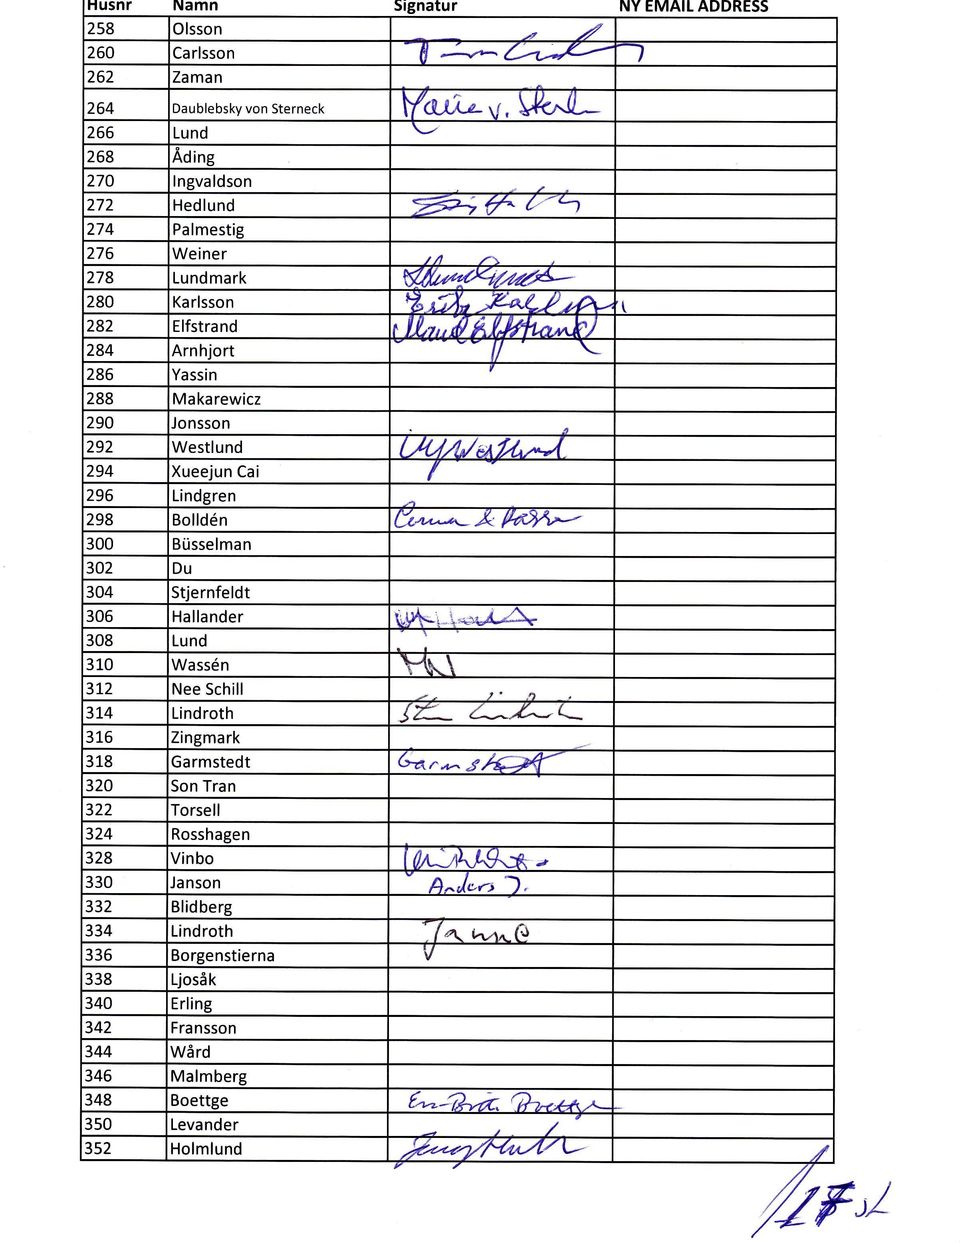 Husnr Namn Signatur NY EMAIL ADDRESS
258 Olsson
260 Carlsson
262 Zaman
264 Daublebsky von Sterneck Marie v. Stern
266 Lund
268 Åding
270 Ingvaldson
272 Hedlund
274 Palmestig
276 Weiner
278 Lundmark
280 Karlsson
282 Elfstrand Maud Elfstrand
284 Arnhjort
286 Yassin
288 Makarewicz
290 Jonsson
292 Westlund Westlund
294 Xueejun Cai
296 Lindgren
298 Bolldén
300 Büsselman
302 Du
304 Stjernfeldt
306 Hallander
308 Lund
310 Wassén
312 Nee Schill
314 Lindroth
316 Zingmark
318 Garmstedt Garmstedt
320 Son Tran
322 Torsell
324 Rosshagen
328 Vinbo
330 Janson Anders J.
332 Blidberg
334 Lindroth Janne
336 Borgenstierna
338 Ljosåk
340 Erling
342 Fransson
344 Wård
346 Malmberg
348 Boettge Boettge
350 Levander
352 Holmlund